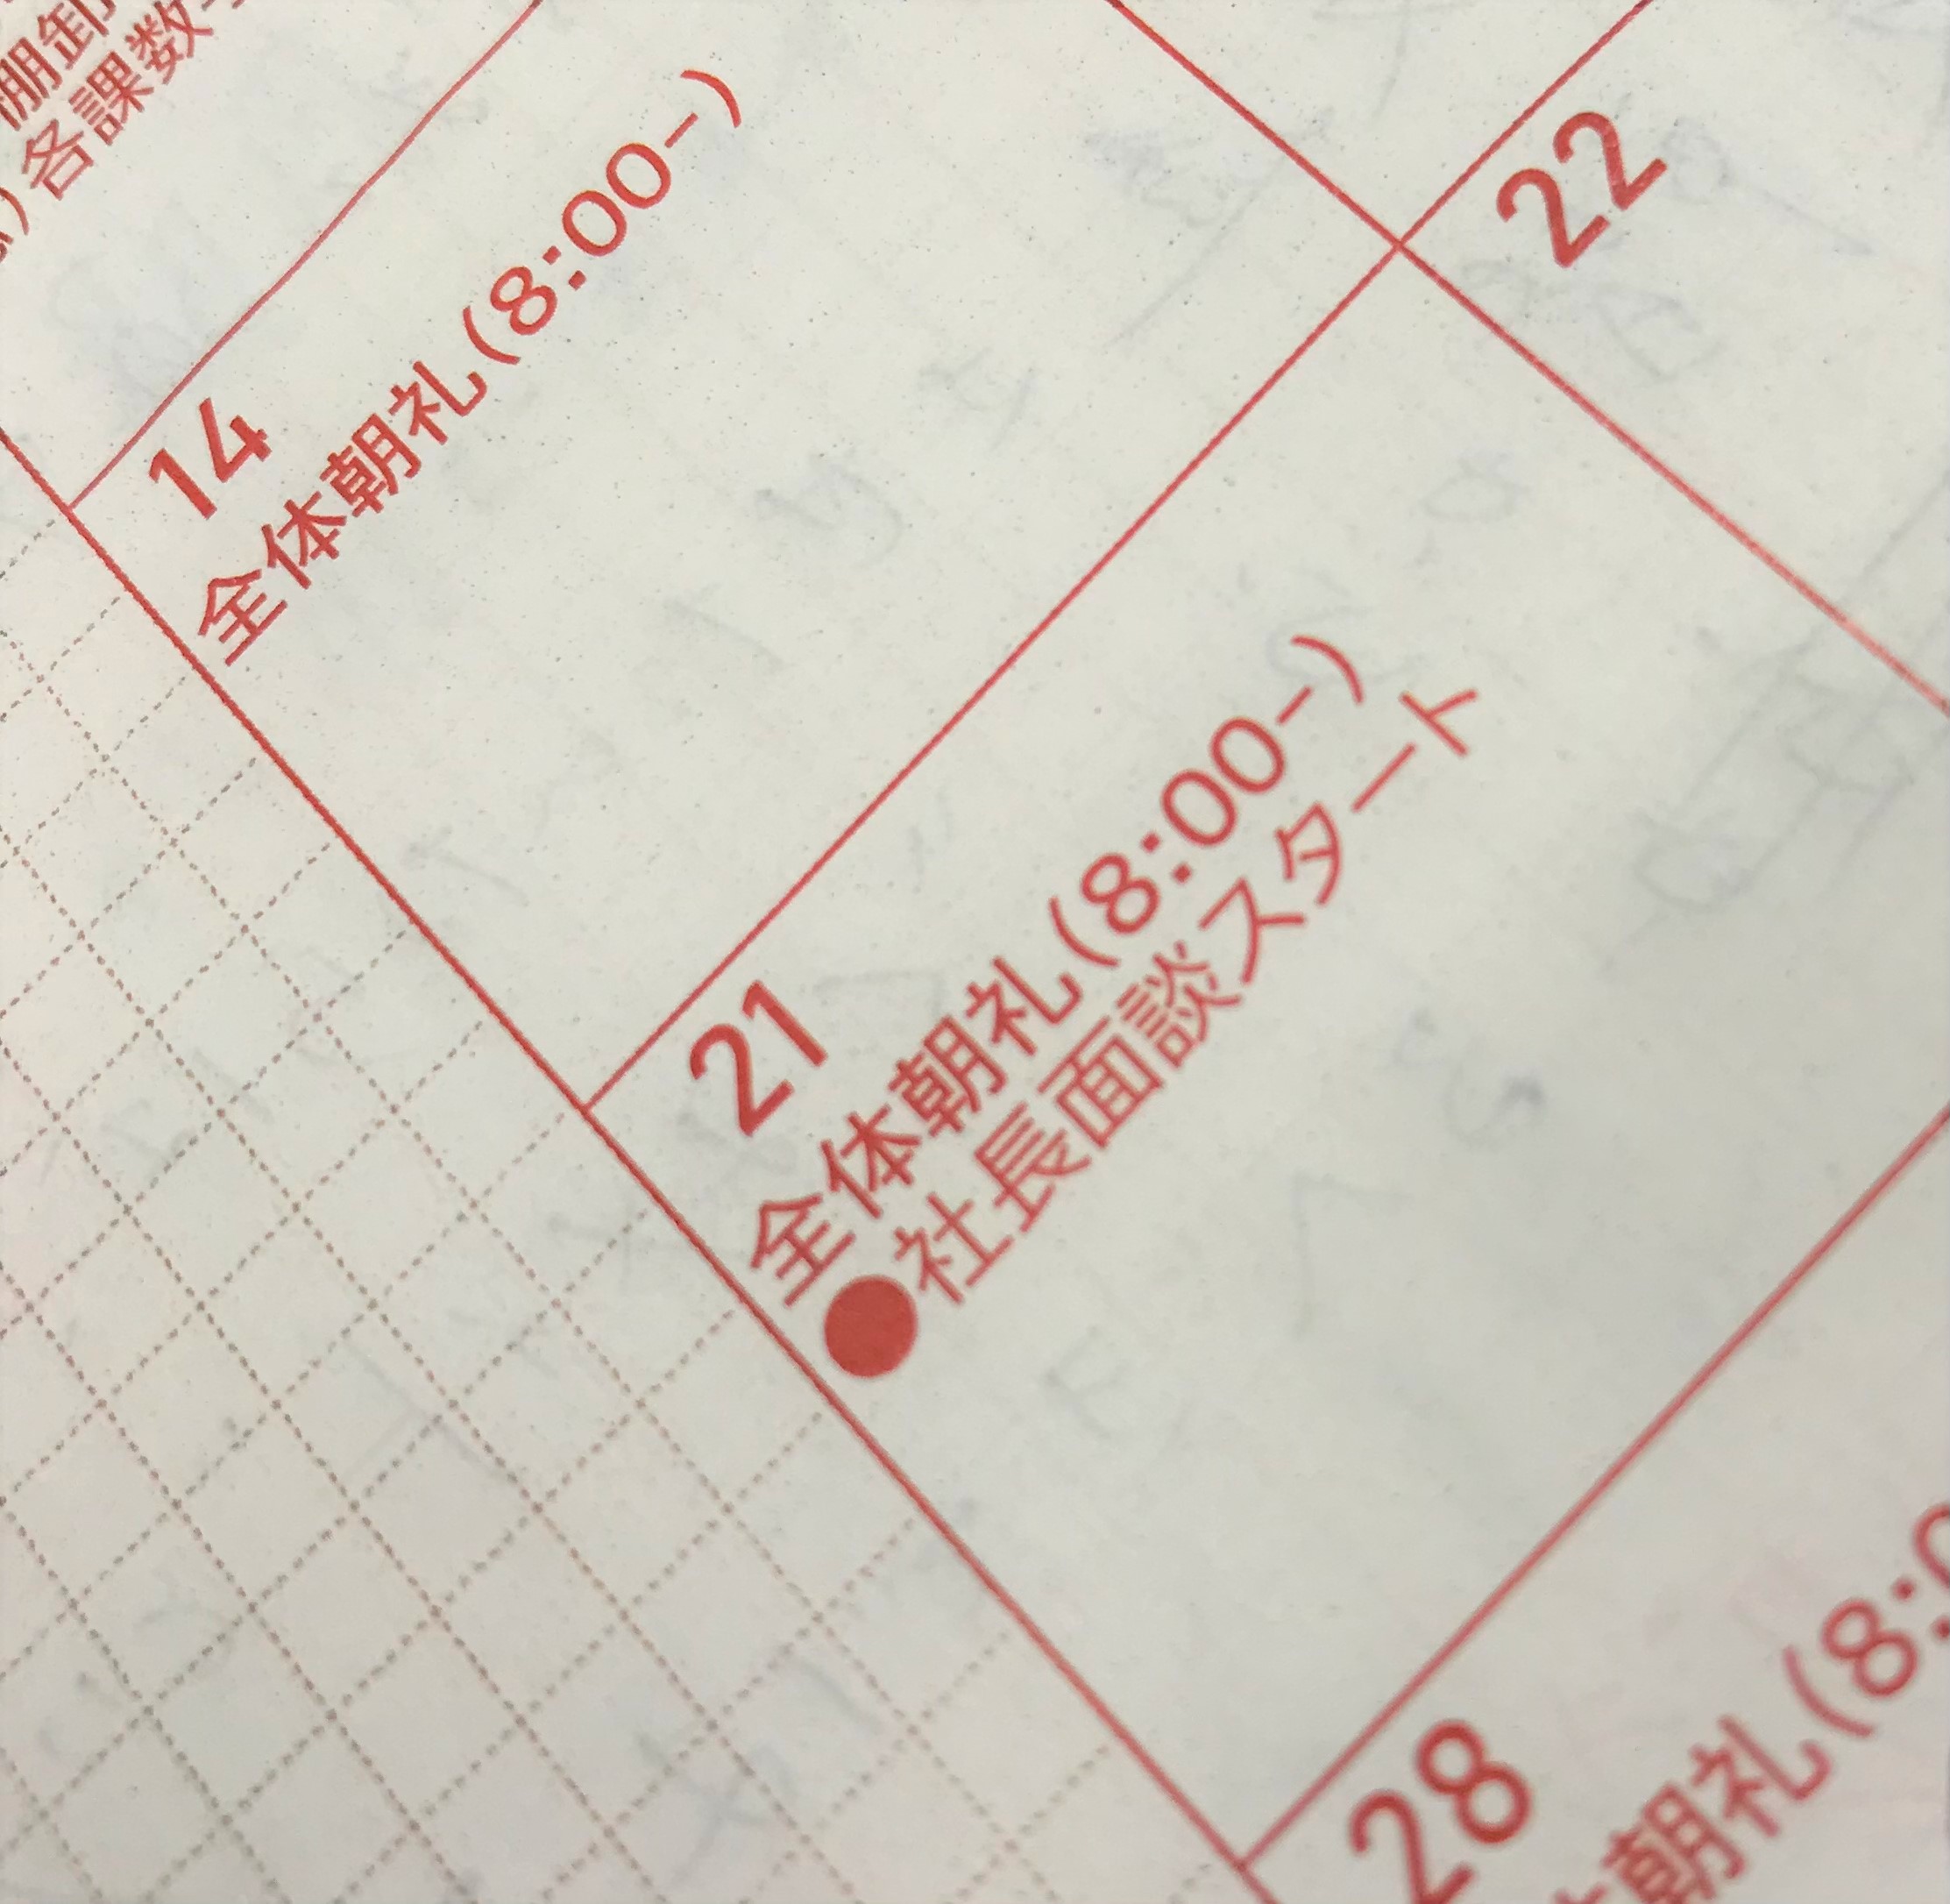 棚卸
各課数
14
全体朝礼(8:00-)
22
21
全体朝礼(8:00-)
●社長面談スタート
28
朝礼(8:0